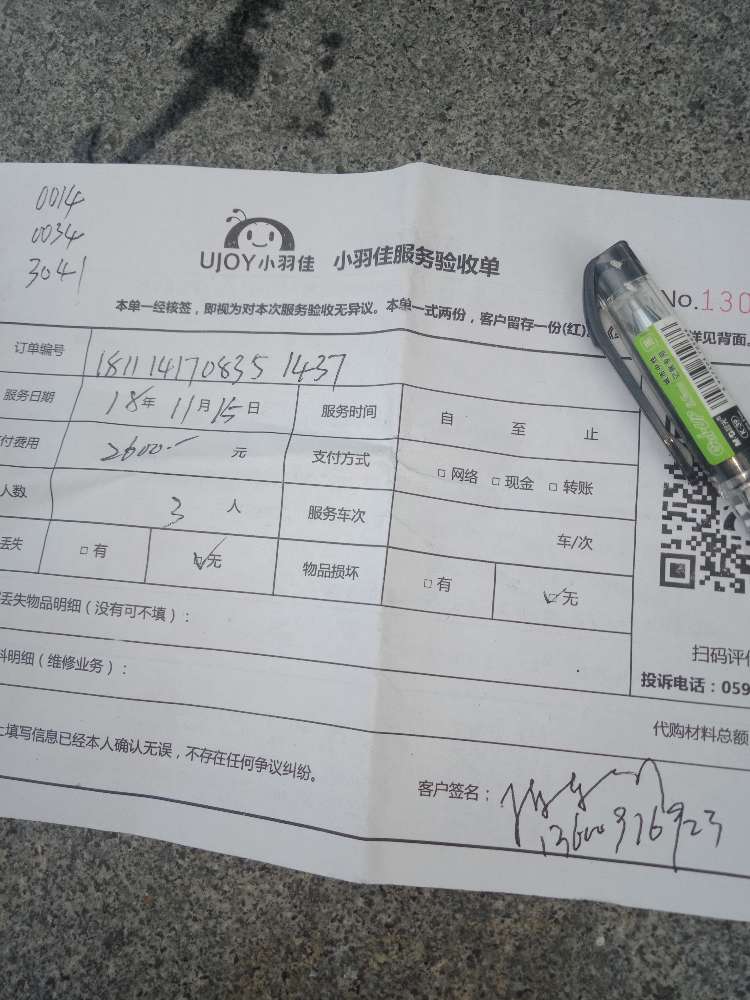 0014
0034
3041
UJOY小羽佳 小羽佳服务验收单
No.130
本单一经核签，即视为对本次服务验收无异议。本单一式两份，客户留存一份(红)
详见背面。
订单编号 181114170835 1437
服务日期 18年 11月 15日 服务时间 自 至 止
付费用 2600.- 元 支付方式 □ 网络 □ 现金 □ 转账
人数 3 人 服务车次 车/次
丢失 □ 有 □ 无 物品损坏 □ 有 □ 无
丢失物品明细（没有可不填）：
料明细（维修业务）：
扫码评价
投诉电话：059
代购材料总额
上填写信息已经本人确认无误，不存在任何争议纠纷。
客户签名：
13600976923